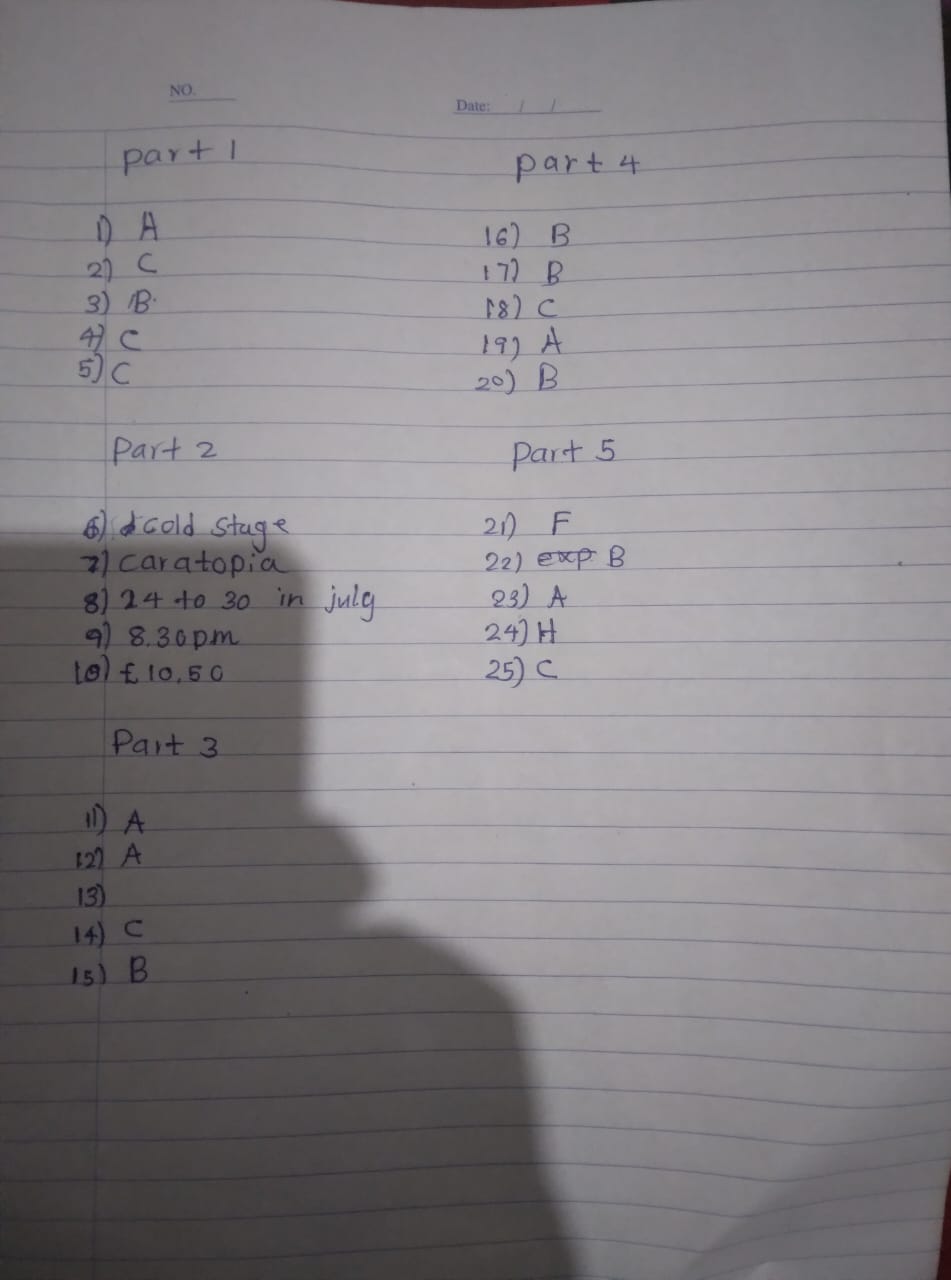 NO.
Date: / /
part 1
1) A
2) C
3) B
4) C
5) C
Part 2
6) cold stage
7) caratopia
8) 24 to 30 in july
9) 8.30pm
10) £10,50
Part 3
11) A
12) A
13)
14) C
15) B
part 4
16) B
17) B
18) C
19) A
20) B
Part 5
21) F
22) exp B
23) A
24) H
25) C